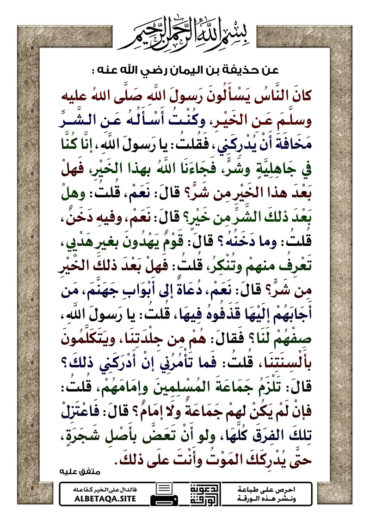 بسم الله الرحمن الرحيم
عن حذيفة بن اليمان رضي الله عنه :
كانَ النَّاسُ يَسْأَلُونَ رَسولَ اللَّهِ صَلَّى اللهُ عليه
وسلَّمَ عَنِ الخَيْرِ، وكُنْتُ أَسْأَلُهُ عَنِ الشَّرِّ
مَخَافَةَ أَنْ يُدْرِكَنِي، فَقُلتُ: يا رَسولَ اللَّهِ، إنَّا كُنَّا
في جَاهِلِيَّةٍ وشَرٍّ، فَجَاءَنَا اللَّهُ بهذا الخَيْرِ، فَهلْ
بَعْدَ هذا الخَيْرِ مِن شَرٍّ؟ قالَ: نَعَمْ، قُلتُ: وهلْ
بَعْدَ ذلكَ الشَّرِّ مِن خَيْرٍ؟ قالَ: نَعَمْ، وفيهِ دَخَنٌ،
قُلتُ: وما دَخَنُهُ؟ قالَ: قَوْمٌ يَهْدُونَ بغيرِ هَدْيِي،
تَعْرِفُ منهمْ وتُنْكِرُ، قُلتُ: فَهلْ بَعْدَ ذلكَ الخَيْرِ
مِن شَرٍّ؟ قالَ: نَعَمْ، دُعَاةٌ إلى أبْوَابِ جَهَنَّمَ، مَن
أجَابَهُمْ إلَيْهَا قَذَفُوهُ فِيهَا، قلتُ: يا رَسولَ اللَّهِ،
صِفْهُمْ لَنَا؟ فَقالَ: هُمْ مِن جِلْدَتِنَا، ويَتَكَلَّمُونَ
بأَلْسِنَتِنَا، قُلتُ: فَما تَأْمُرُنِي إنْ أدْرَكَنِي ذلكَ؟
قالَ: تَلْزَمُ جَمَاعَةَ المُسْلِمِينَ وإمَامَهُمْ، قلتُ:
فإنْ لَمْ يَكُنْ لهمْ جَمَاعَةٌ ولَا إمَامٌ؟ قالَ: فَاعْتَزِلْ
تِلكَ الفِرَقَ كُلَّهَا، ولو أنْ تَعَضَّ بأَصْلِ شَجَرَةٍ،
حتَّى يُدْرِكَكَ المَوْتُ وأَنْتَ علَى ذلكَ.
متفق عليه
احرص على طباعة
ونشر هذه الورقة
الدعوية
الورقة
فالدال على الخير كفاعله
ALBETAQA.SITE